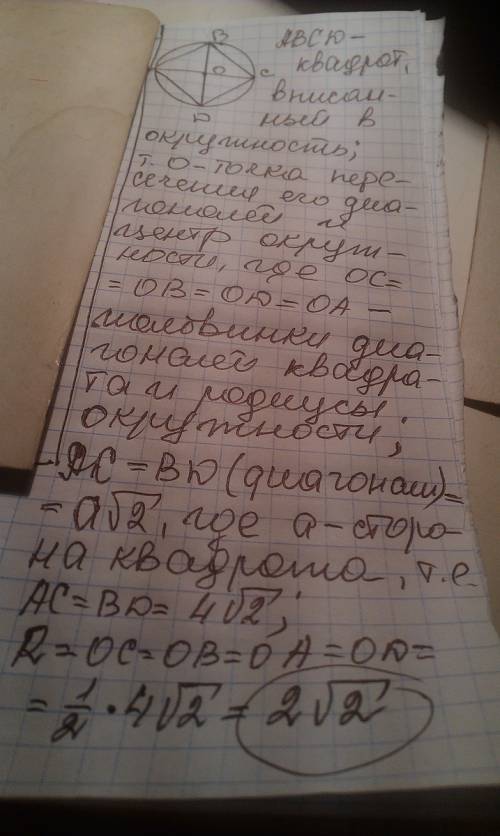 B
ABCD –
квадрат,
O
C
вписан-
D
ный в
окружность;
т. O – точка пере-
сечения его диа-
гоналей и
центр окруж-
ности, где OC =
= OB = OD = OA –
половинки диа-
гоналей квадра-
та и радиусы
окружности;
AC = BD (диагонали) =
= a√2, где a – сторо-
на квадрата, т.е.
AC = BD = 4√2;
R = OC = OB = OA = OD =
= 1/2 · 4√2 = 2√2